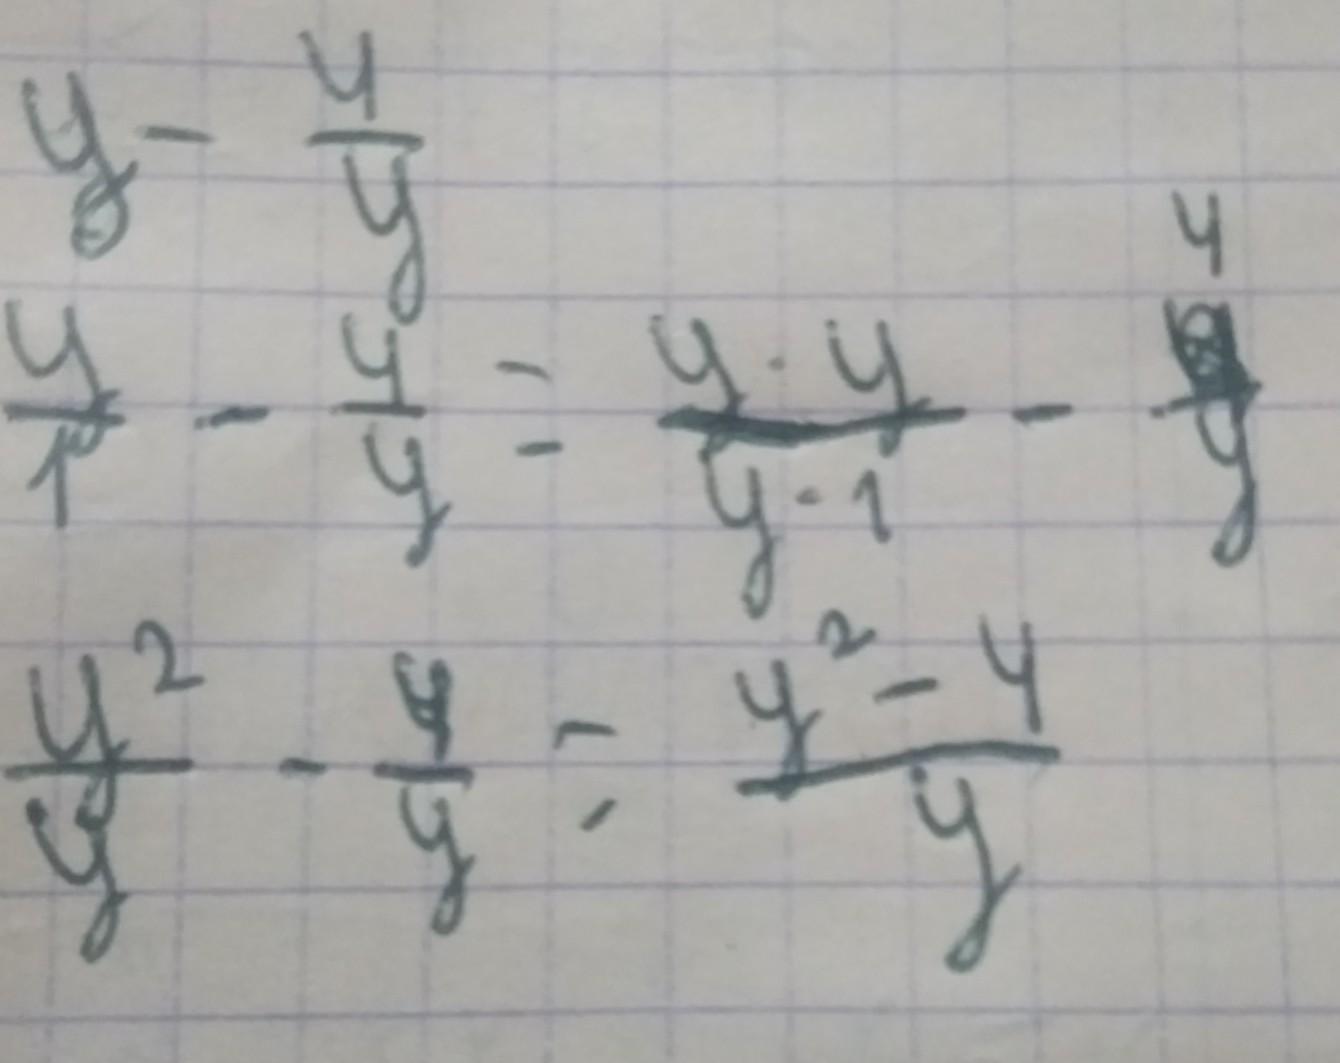 y - 4/y
y/1 - 4/y = y · y / y · 1 - 4/y
y²/y - 4/y = y² - 4 / y